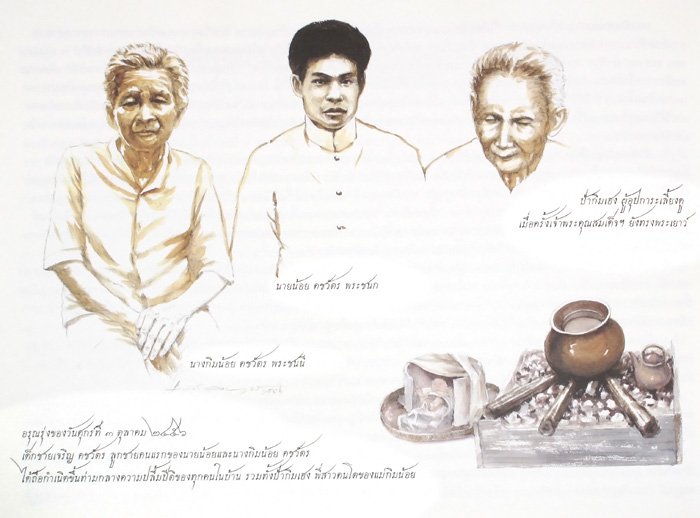 ป้ากิมเฮง ผู้อุปการะเลี้ยงดู
เมื่อครั้งเจ้าพระคุณสมเด็จฯ ยังทรงพระเยาว์
นายน้อย คชวัตร พระชนก
นางกิมน้อย คชวัตร พระชนนี
อรุณรุ่งของวันศุกร์ที่ ๓ ตุลาคม ๒๔๕๖
เด็กชายเจริญ คชวัตร ลูกชายคนแรกของนายน้อยและนางกิมน้อย คชวัตร
ได้ถือกำเนิดขึ้นท่ามกลางความปลื้มปิติของทุกคนในบ้าน รวมทั้งป้ากิมเฮง พี่สาวคนโตของแม่กิมน้อย